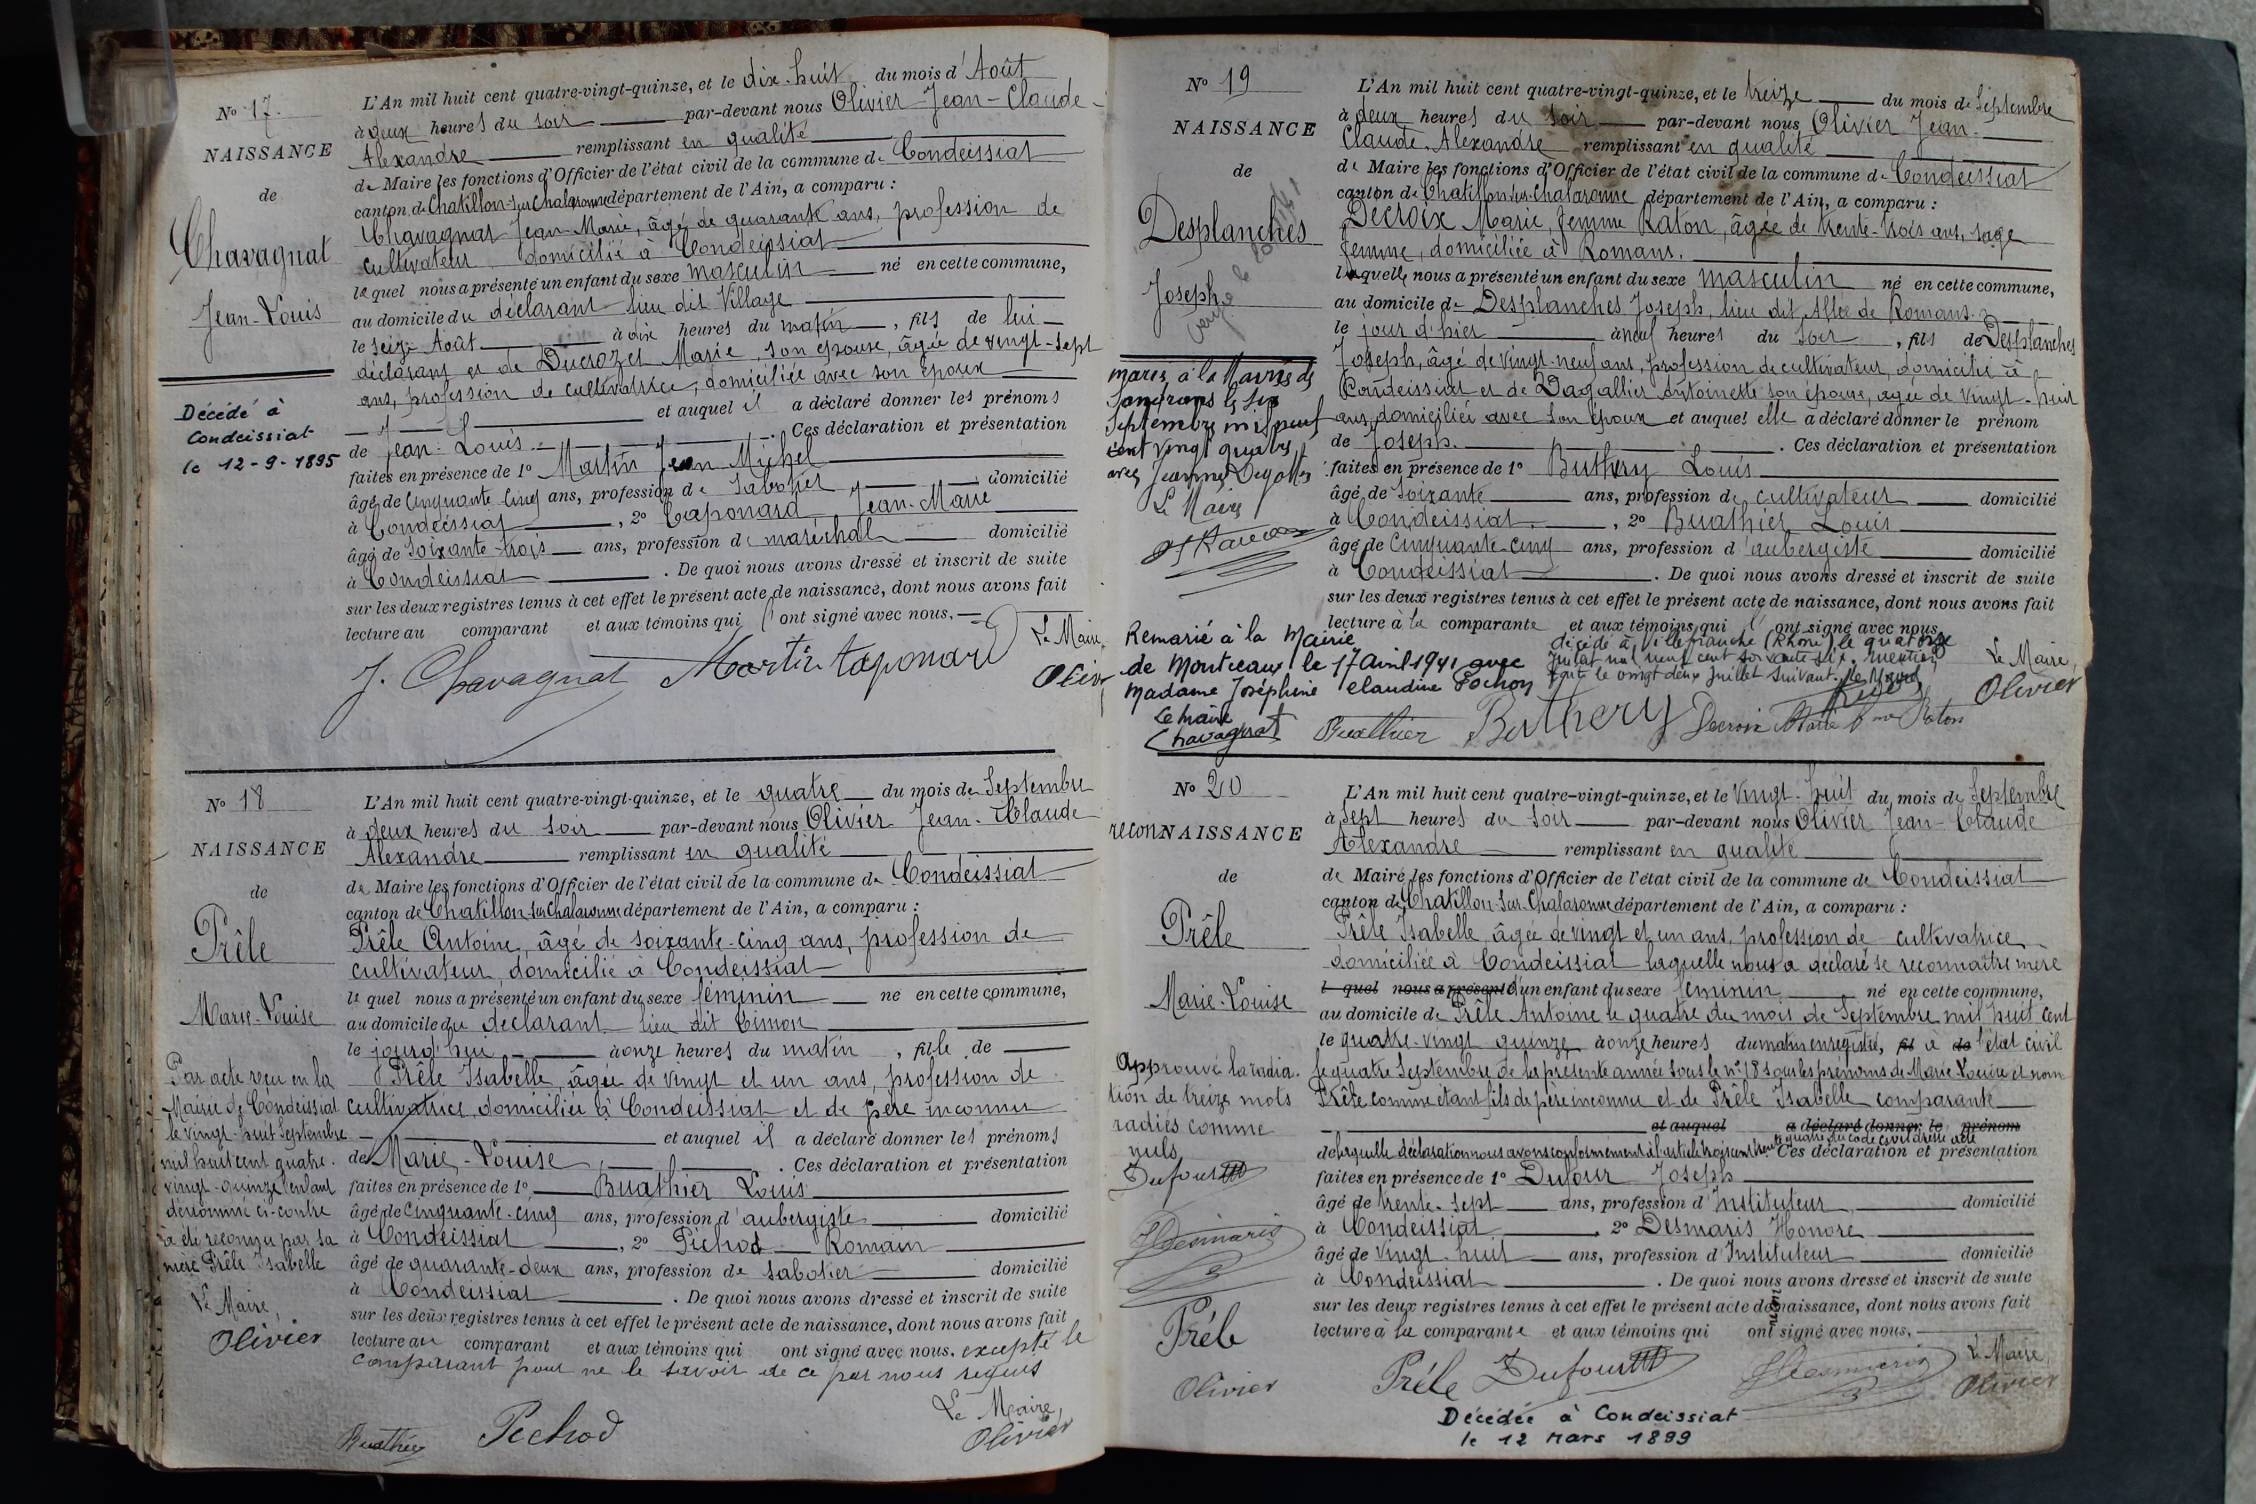 N° 17.
NAISSANCE
de
Chavagnat
Jean-Louis
Décédé à
Condeissiat
le 12-9-1895
L'An mil huit cent quatre-vingt-quinze, et le dix-huit du mois d'Août
à deux heures du soir par-devant nous Olivier Jean-Claude-
Alexandre remplissant en qualité
de Maire les fonctions d'Officier de l'état civil de la commune de Condeissiat
canton de Chatillon-sur-Chalaronne département de l'Ain, a comparu :
Chavagnat Jean-Marie, âgé de quarante ans, profession de
cultivateur domicilié à Condeissiat
lequel nous a présenté un enfant du sexe masculin né en cette commune,
au domicile du déclarant lieu dit Village
le seize Août à dix heures du matin, fils de lui
déclarant et de Ducrozet Marie, son épouse, âgée de vingt-sept
ans, profession de cultivatrice, domiciliée avec son époux
et auquel il a déclaré donner les prénoms
de Jean-Louis. Ces déclaration et présentation
faites en présence de 1° Martin Jean Michel
âgé de cinquante cinq ans, profession de sabotier domicilié
à Condeissiat, 2° Taponard Jean-Marie
âgé de soixante-trois ans, profession de maréchal domicilié
à Condeissiat. De quoi nous avons dressé et inscrit de suite
sur les deux registres tenus à cet effet le présent acte de naissance, dont nous avons fait
lecture au comparant et aux témoins qui ont signé avec nous.
Le Maire,
J. Chavagnat Martin taponard Olivier
N° 18
NAISSANCE
de
Prêle
Marie-Louise
Par acte reçu en la
Mairie de Condeissiat
le vingt-huit Septembre
mil huit cent quatre-
vingt-quinze l'enfant
dénommé ci-contre
a été reconnu par sa
mère Prêle Isabelle
Le Maire,
Olivier
L'An mil huit cent quatre-vingt-quinze, et le quatre du mois de Septembre
à deux heures du soir par-devant nous Olivier Jean-Claude
Alexandre remplissant en qualité
de Maire les fonctions d'Officier de l'état civil de la commune de Condeissiat
canton de Chatillon-sur-Chalaronne département de l'Ain, a comparu :
Prêle Antoine, âgé de soixante-cinq ans, profession de
cultivateur, domicilié à Condeissiat
lequel nous a présenté un enfant du sexe féminin né en cette commune,
au domicile du déclarant lieu dit Simon
le jourd'hui à onze heures du matin, fille de
Prêle Isabelle, âgée de vingt et un ans, profession de
cultivatrice, domiciliée à Condeissiat et de père inconnu
et auquel il a déclaré donner les prénoms
de Marie-Louise. Ces déclaration et présentation
faites en présence de 1° Buathier Louis
âgé de cinquante-cinq ans, profession d'aubergiste domicilié
à Condeissiat, 2° Pichod Romain
âgé de quarante-deux ans, profession de sabotier domicilié
à Condeissiat. De quoi nous avons dressé et inscrit de suite
sur les deux registres tenus à cet effet le présent acte de naissance, dont nous avons fait
lecture au comparant et aux témoins qui ont signé avec nous. excepté le
comparant pour ne le savoir de ce par nous requis
Le Maire,
Buathier Pechod Olivier
N° 19
NAISSANCE
de
Desplanches
Joseph
mariés à la Mairie de
Sandrans le six
Septembre mil neuf
cent vingt quatre
avec Jeanne
Le Maire
Remarié à la Mairie
de Montceaux le 17 avril 1941 avec
Madame Joséphine Claudine Pochon
Le Maire
Chavagnat
L'An mil huit cent quatre-vingt-quinze, et le treize du mois de Septembre
à deux heures du soir par-devant nous Olivier Jean-
Claude-Alexandre remplissant en qualité
de Maire les fonctions d'Officier de l'état civil de la commune de Condeissiat
canton de Chatillon-sur-Chalaronne département de l'Ain, a comparu :
Decroix Marie, femme Raton, âgée de trente-trois ans, sage
femme, domiciliée à Romans.
laquelle nous a présenté un enfant du sexe masculin né en cette commune,
au domicile de Desplanches Joseph, lieu dit Allée de Romans.
le jour d'hier à neuf heures du soir, fils de Desplanches
Joseph, âgé de vingt-neuf ans, profession de cultivateur, domicilié à
Condeissiat et de Dagallier Antoinette son épouse, agée de vingt-huit
ans, domiciliée avec son époux et auquel elle a déclaré donner le prénom
de Joseph. Ces déclaration et présentation
faites en présence de 1° Buthery Louis
âgé de soixante ans, profession de cultivateur domicilié
à Condeissiat, 2° Buathier Louis
âgé de cinquante-cinq ans, profession d'aubergiste domicilié
à Condeissiat. De quoi nous avons dressé et inscrit de suite
sur les deux registres tenus à cet effet le présent acte de naissance, dont nous avons fait
lecture à la comparante et aux témoins qui ont signé avec nous.
décédé à Villefranche (Rhône) le quatorze
Juillet mil neuf cent soixante six. mention
faite le vingt deux juillet suivant. Le Maire
Le Maire,
Olivier
Buathier Buthery Decroix Marie fme Raton
N° 20
reconNAISSANCE
de
Prêle
Marie-Louise
Approuvé la radia-
tion de treize mots
radiés comme
nuls
Dufour
HDesmaris
Prêle
Olivier
L'An mil huit cent quatre-vingt-quinze, et le vingt-huit du mois de Septembre
à sept heures du soir par-devant nous Olivier Jean-Claude
Alexandre remplissant en qualité
de Maire les fonctions d'Officier de l'état civil de la commune de Condeissiat
canton de Chatillon-sur-Chalaronne département de l'Ain, a comparu :
Prêle Isabelle, âgée de vingt et un ans, profession de cultivatrice
domiciliée à Condeissiat laquelle nous a déclaré se reconnaître mère
l quel nous a présenté d'un enfant du sexe féminin né en cette commune,
au domicile de Prêle Antoine le quatre du mois de Septembre mil huit cent
le quatre-vingt quinze à onze heures du matin enregistré, fil à de l'état civil
le quatre Septembre de la présente année sous le n° 18 sous les prénoms de Marie Louise et nom
Prêle comme étant fils de père inconnu et de Prêle Isabelle comparante
et auquel a déclaré donner le prénom
de laquelle déclaration nous avons conformément à l'article trois cent trente quatre du code civil dressé acte Ces déclaration et présentation
faites en présence de 1° Dufour Joseph
âgé de trente-sept ans, profession d'Instituteur domicilié
à Condeissiat, 2° Desmaris Honoré
âgé de vingt-huit ans, profession d'Instituteur domicilié
à Condeissiat. De quoi nous avons dressé et inscrit de suite
sur les deux registres tenus à cet effet le présent acte de naissance, dont nous avons fait
lecture à la comparante et aux témoins qui ont signé avec nous.
Le Maire,
Prêle Dufour HDesmaris Olivier
Décédée à Condeissiat
le 12 Mars 1899